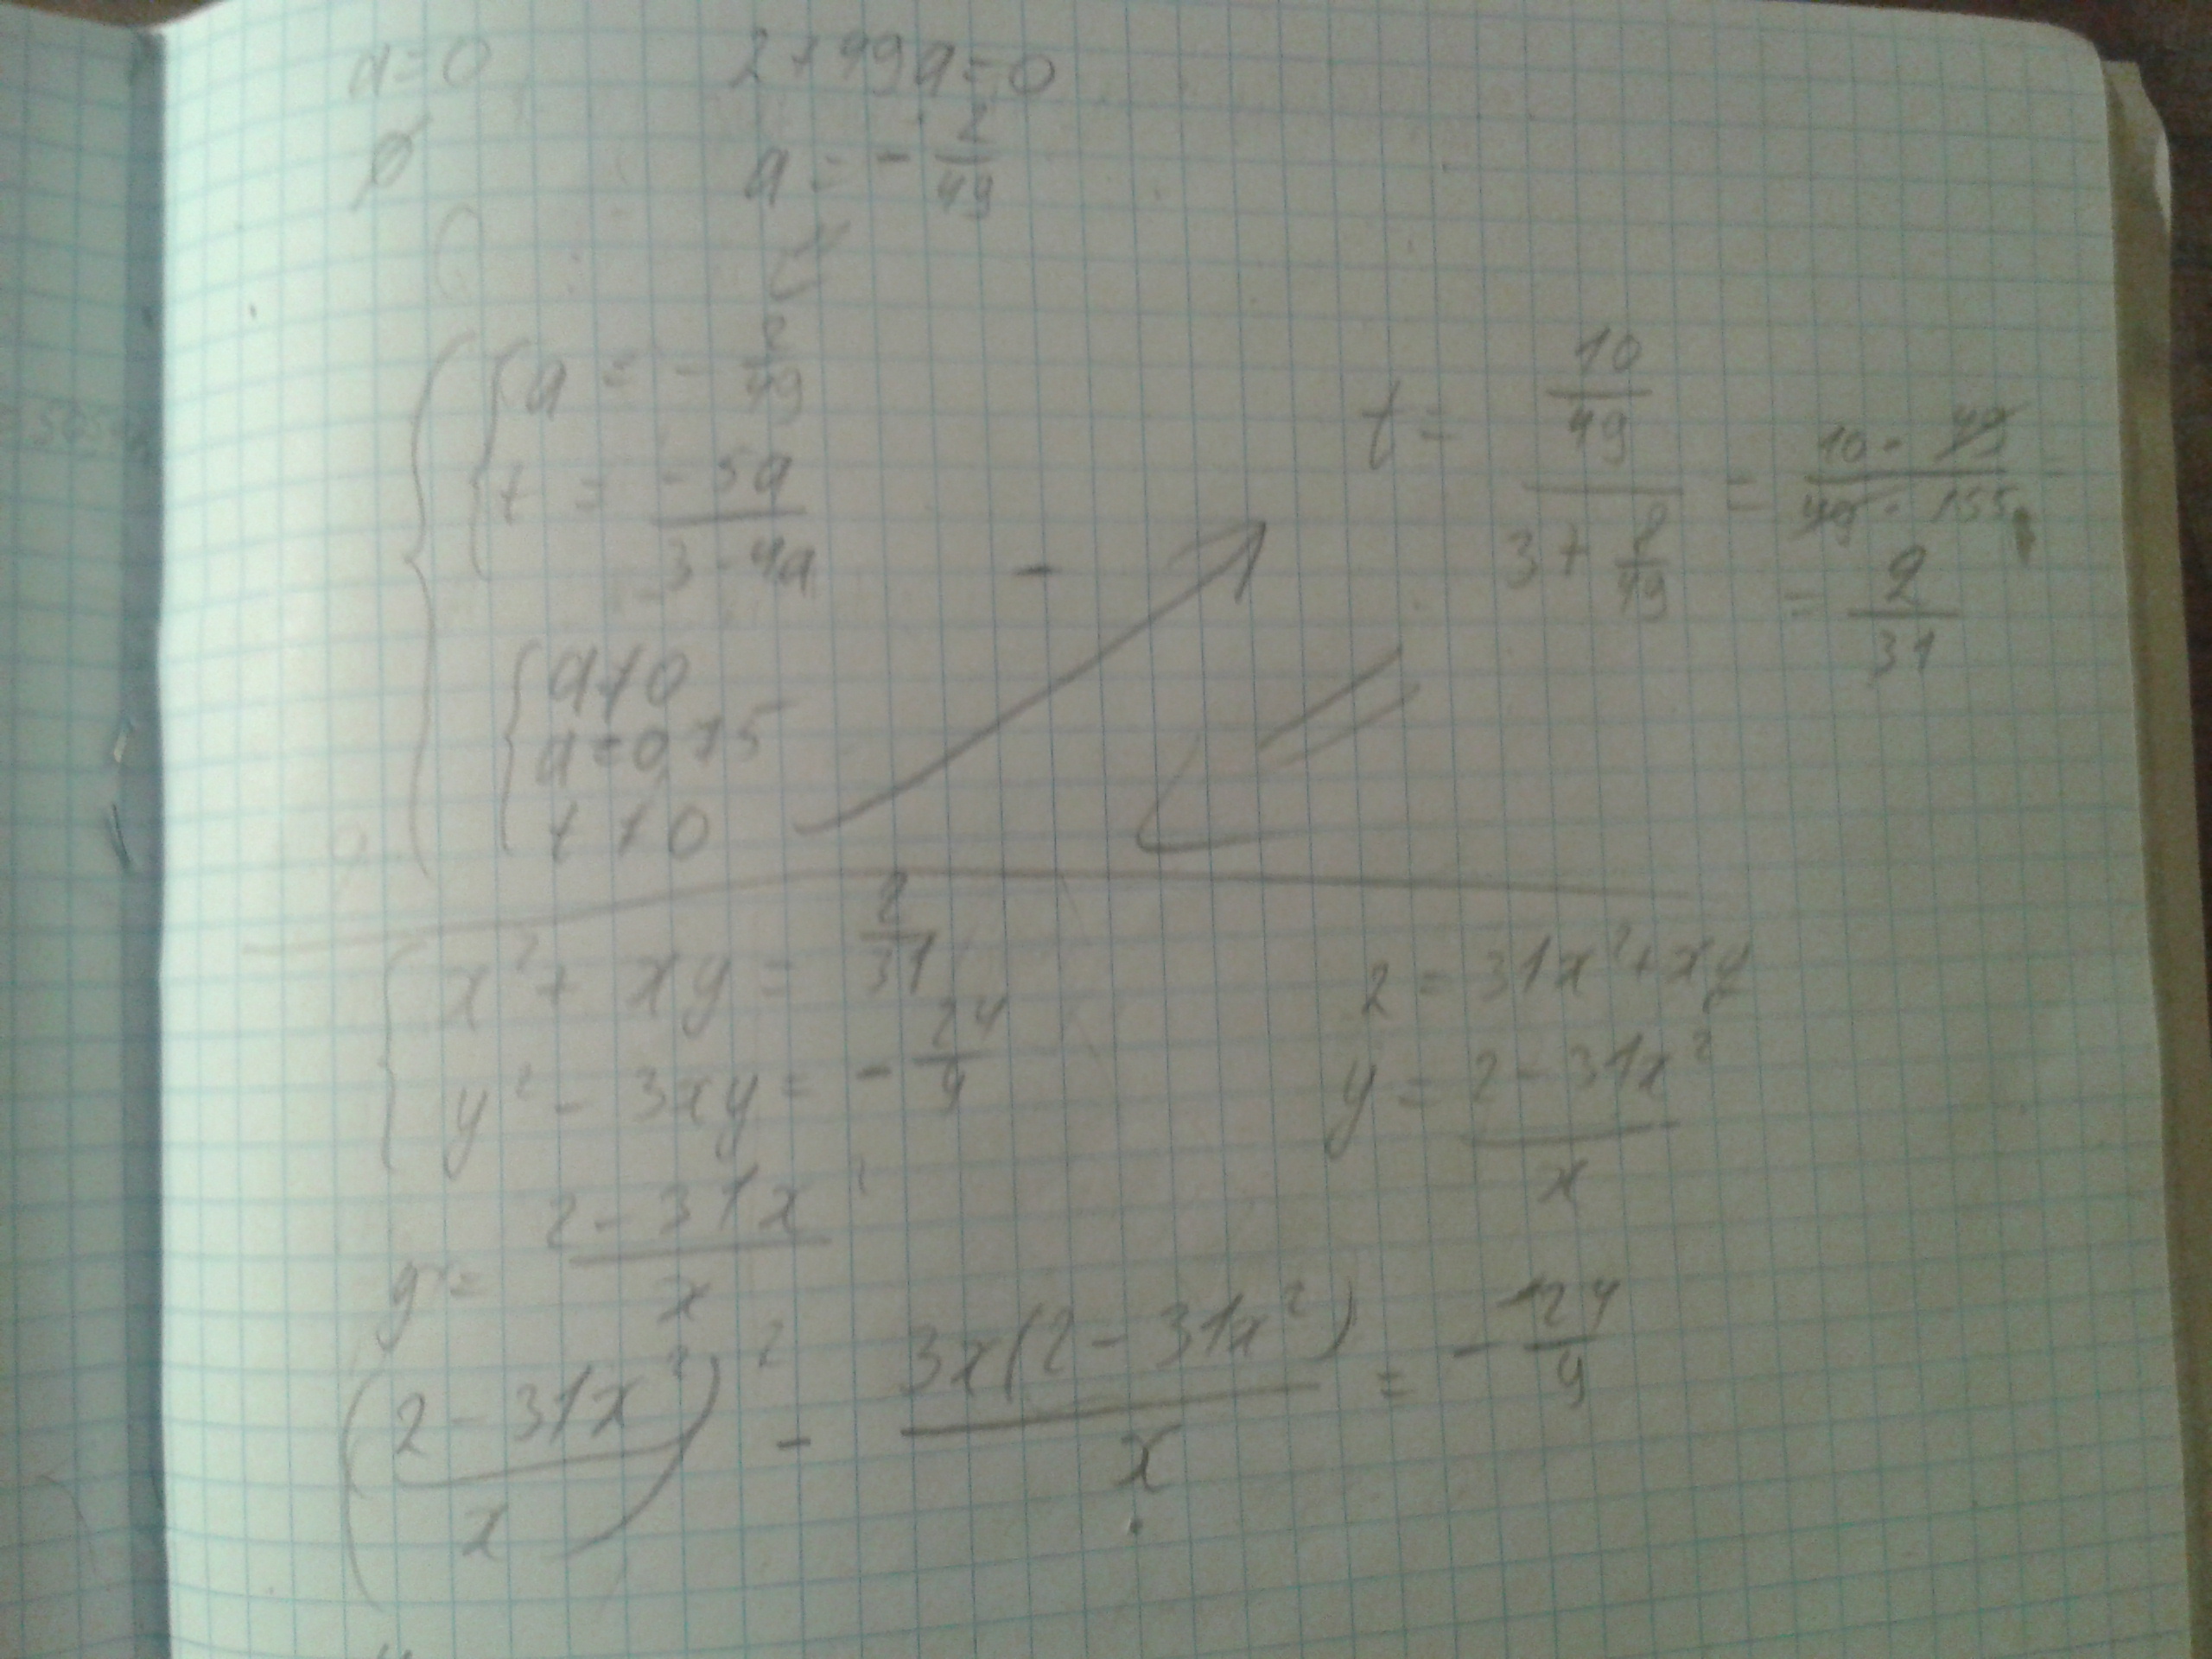 a=0 2+49a=0
ø a = - 2/49
{ { a = - 2/49
t = -5a/(3-4a)
{ a≠0
a=0,75
t≠0
t = (10/49)/(3+8/49) = (10·49)/(49·155) =
= 2/31
{ x² + xy = 2/31
y² - 3xy = - 24/49
2 = 31x²+xy
y = (2-31x²)/x
y = (2-31x²)/x
((2-31x²)/x)² - 3x(2-31x²)/x = - 24/49